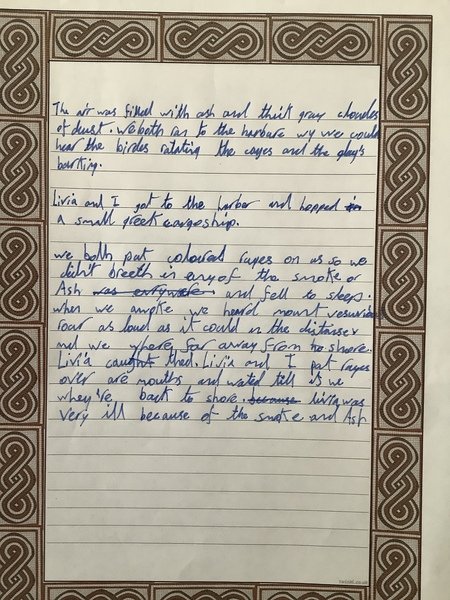 The air was filled with ash and thick gray cloudes
of dust. we both ran to the harbure wy we could
hear the birdes ratating the cages and the dog's
barking.
Livia and I got to the harber and hopped in
a small greek cargoship.
we both put coloured rages on us so we
didn't breeth in any of the smoke or
Ash was everywhere and fell to sleep.
when we awoke we heard mount vesuvius
roar as loud as it could in the distanser
and we where far away from the shore.
Livia caught thed. Livia and I put rages
over are mouths and wated till is we
whey're back to shore. because livia was
very ill because of the smoke and Ash
twinkl.co.uk